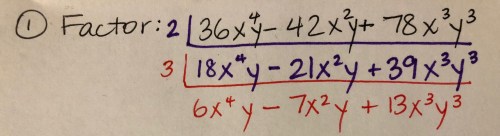 ① Factor: 2 | 36x⁴y - 42x²y + 78x³y³
3 | 18x⁴y - 21x²y + 39x³y³
6x⁴y - 7x²y + 13x³y³